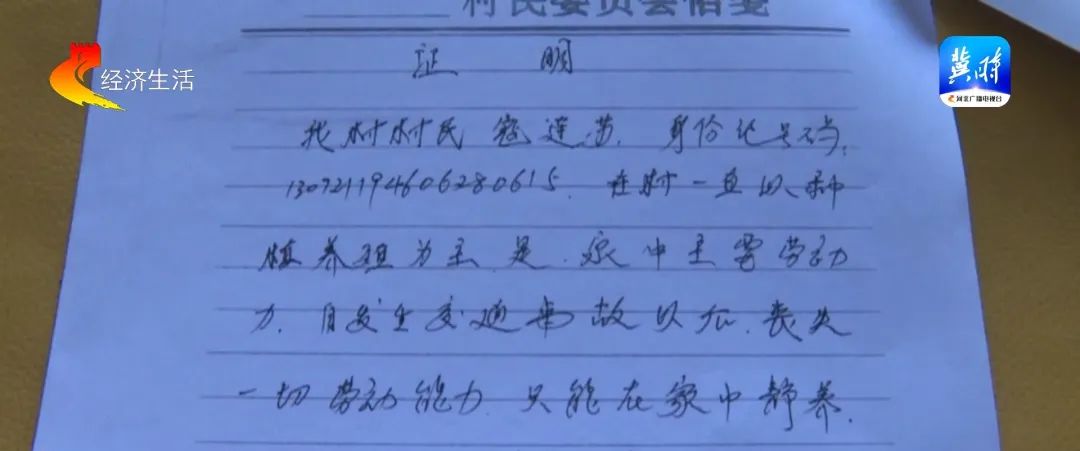 村民委员会信笺
经济生活
冀时
河北广播电视台
证 明
我村村民寇连，身份证号码，
130721194606280615．在村一直以种
植养殖为主，是．家中主要劳动
力．自发生交通事故以后．丧失
一切劳动能力．只能在家中静养．